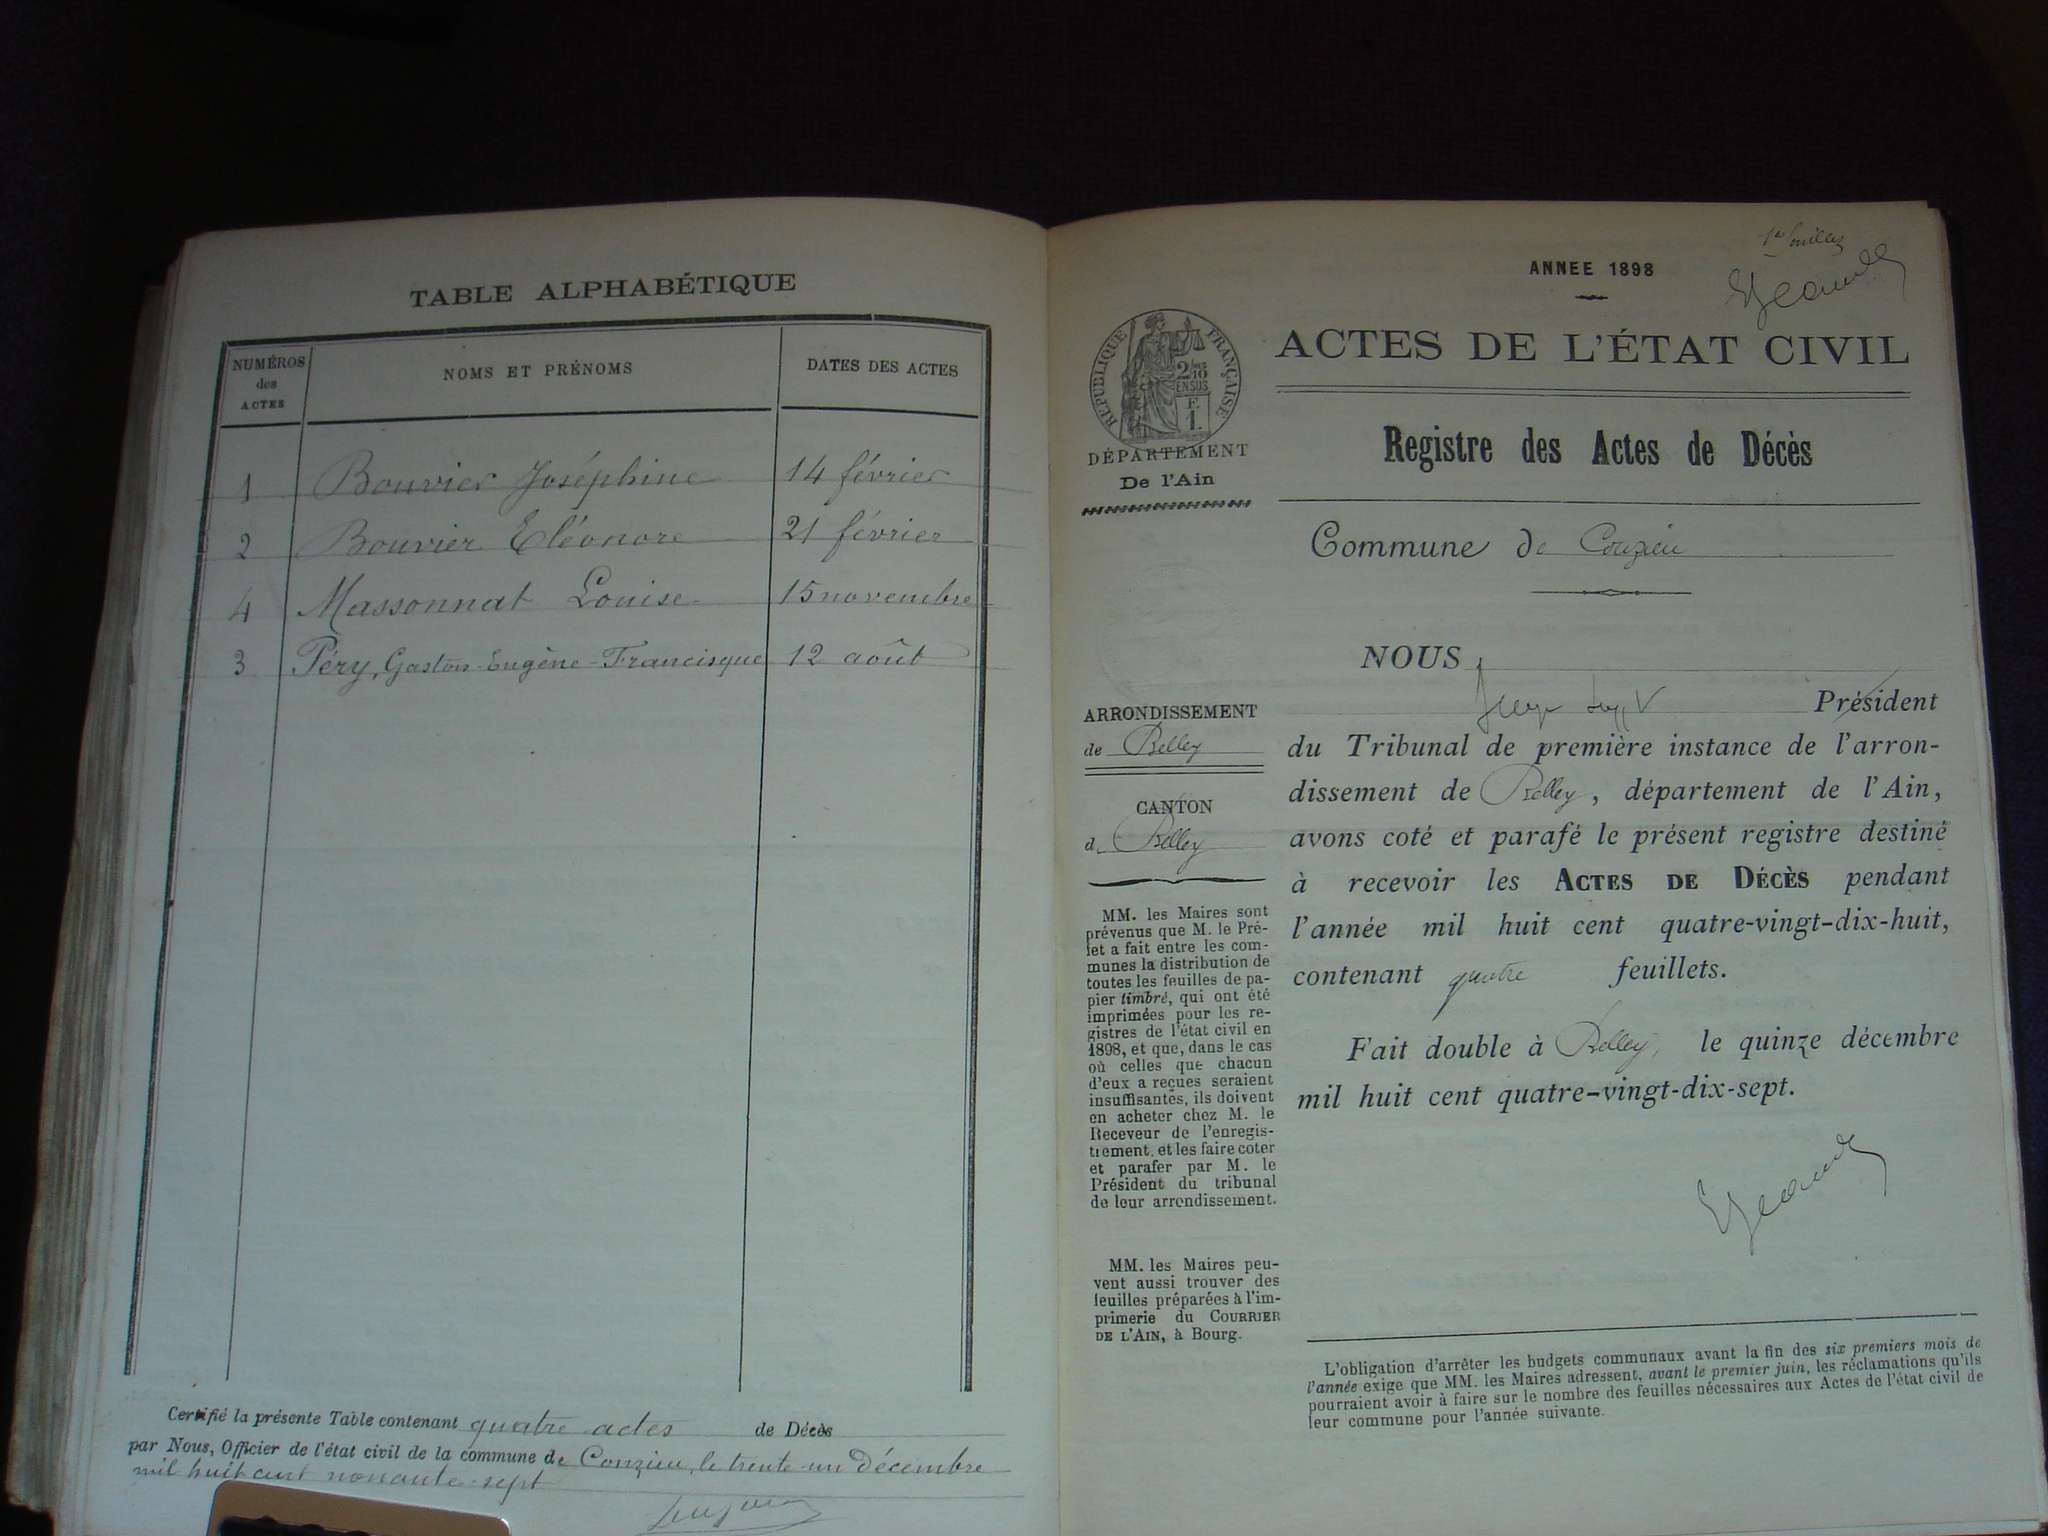 TABLE ALPHABÉTIQUE
NUMÉROS des ACTES NOMS ET PRÉNOMS DATES DES ACTES
1 Bouvier Joséphine 14 février
2 Bouvier Eléonore 21 février
4 Massonnat Louise 15 novembre
3 Péry, Gaston-Eugène-Francisque 12 août
Certifié la présente Table contenant quatre actes de Décès
par Nous, Officier de l'état civil de la commune de Conzieu, le trente-un Décembre
mil huit cent nonante-sept
ANNEE 1898
ACTES DE L'ÉTAT CIVIL
RÉPUBLIQUE FRANÇAISE
2/10 EN SUS
F.
1.
DÉPARTEMENT
De l'Ain
Registre des Actes de Décès
Commune de Conzieu
NOUS
Président
du Tribunal de première instance de l'arron-
dissement de Belley, département de l'Ain,
avons coté et parafé le présent registre destiné
à recevoir les ACTES DE DÉCÈS pendant
l'année mil huit cent quatre-vingt-dix-huit,
contenant quatre feuillets.
Fait double à Belley, le quinze décembre
mil huit cent quatre-vingt-dix-sept.
ARRONDISSEMENT
de Belley
CANTON
de Belley
MM. les Maires sont
prévenus que M. le Pré-
fet a fait entre les com-
munes la distribution de
toutes les feuilles de pa-
pier timbré, qui ont été
imprimées pour les re-
gistres de l'état civil en
1898, et que, dans le cas
où celles que chacun
d'eux a reçues seraient
insuffisantes, ils doivent
en acheter chez M. le
Receveur de l'enregis-
trement, et les faire coter
et parafer par M. le
Président du tribunal
de leur arrondissement.
MM. les Maires peu-
vent aussi trouver des
feuilles préparées à l'im-
primerie du COURRIER
DE L'AIN, à Bourg.
L'obligation d'arrêter les budgets communaux avant la fin des six premiers mois de
l'année exige que MM. les Maires adressent, avant le premier juin, les réclamations qu'ils
pourraient avoir à faire sur le nombre des feuilles nécessaires aux Actes de l'état civil de
leur commune pour l'année suivante.